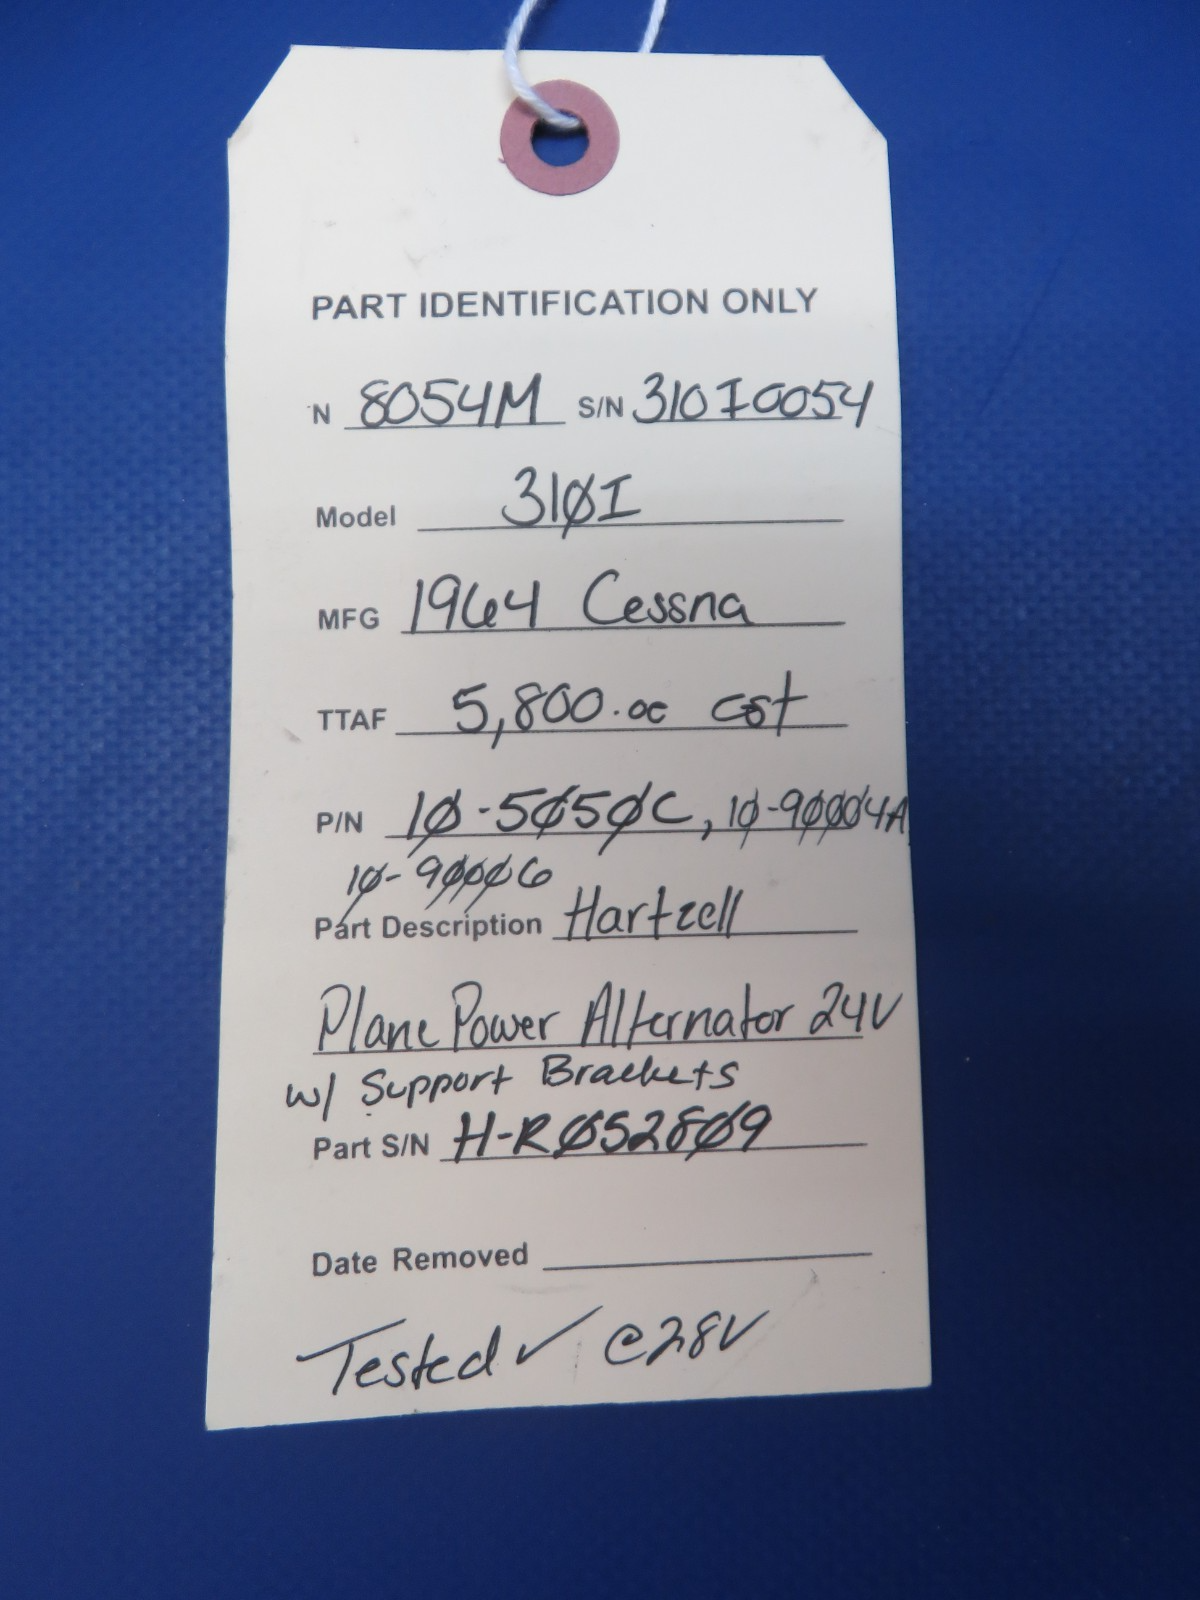 PART IDENTIFICATION ONLY
N 8054M S/N 310I0054
Model 310I
MFG 1964 Cessna
TTAF 5,800.00 est
P/N 10-5050C, 10-90004A
10-90006
Part Description Hartzell
Plane Power Alternator 24V
w/ Support Brackets
Part S/N H-R052809
Date Removed
Tested ✓ @28V